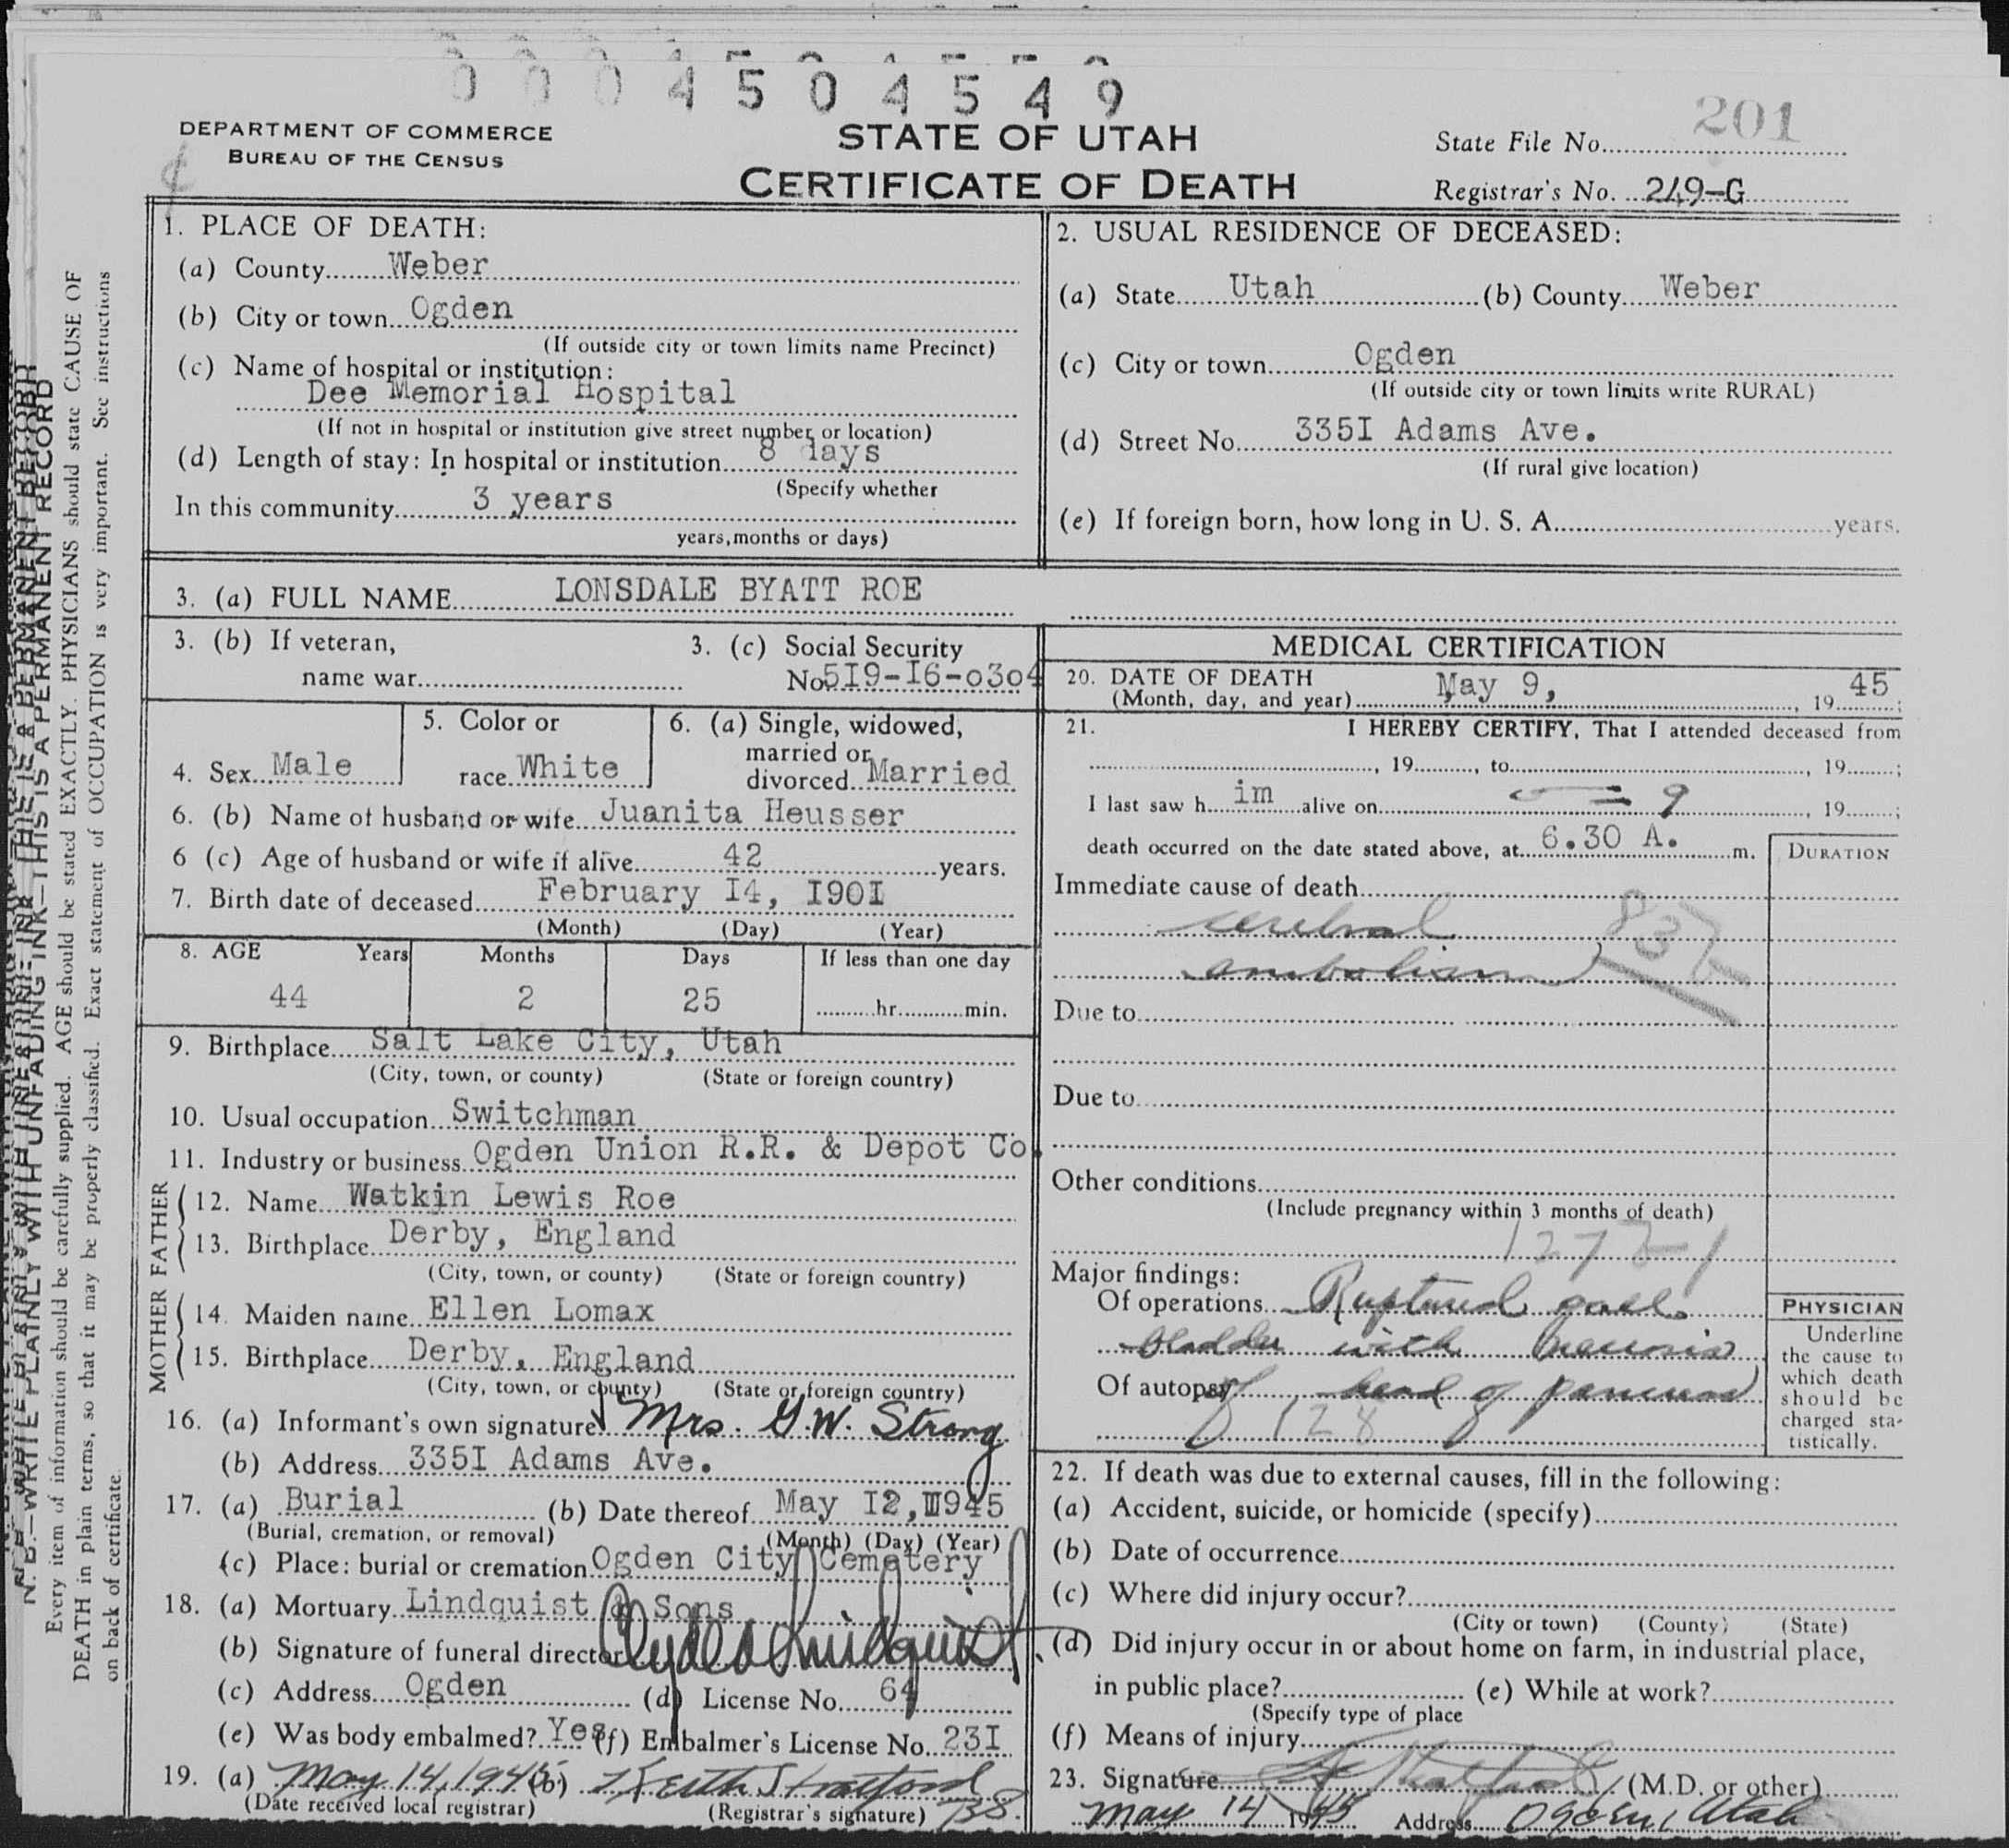 0004504549
DEPARTMENT OF COMMERCE
BUREAU OF THE CENSUS
STATE OF UTAH
CERTIFICATE OF DEATH
State File No. 201
Registrar's No. 249-G
1. PLACE OF DEATH:
(a) County Weber
(b) City or town Ogden
(If outside city or town limits name Precinct)
(c) Name of hospital or institution:
Dee Memorial Hospital
(If not in hospital or institution give street number or location)
(d) Length of stay: In hospital or institution 8 days
(Specify whether
In this community 3 years
years, months or days)
2. USUAL RESIDENCE OF DECEASED:
(a) State Utah (b) County Weber
(c) City or town Ogden
(If outside city or town limits write RURAL)
(d) Street No. 335I Adams Ave.
(If rural give location)
(e) If foreign born, how long in U. S. A. years.
3. (a) FULL NAME LONSDALE BYATT ROE
3. (b) If veteran,
name war
3. (c) Social Security
No. 5I9-I6-0304
4. Sex Male
5. Color or
race White
6. (a) Single, widowed,
married or
divorced Married
6. (b) Name of husband or wife Juanita Heusser
6 (c) Age of husband or wife if alive 42 years.
7. Birth date of deceased February I4, I90I
(Month) (Day) (Year)
8. AGE Years Months Days If less than one day
44 2 25 hr. min.
9. Birthplace Salt Lake City, Utah
(City, town, or county) (State or foreign country)
10. Usual occupation Switchman
11. Industry or business Ogden Union R.R. & Depot Co.
FATHER
12. Name Watkin Lewis Roe
13. Birthplace Derby, England
(City, town, or county) (State or foreign country)
MOTHER
14. Maiden name Ellen Lomax
15. Birthplace Derby, England
(City, town, or county) (State or foreign country)
16. (a) Informant's own signature Mrs. G.W. Strong
(b) Address 335I Adams Ave.
17. (a) Burial (b) Date thereof May I2, I945
(Burial, cremation, or removal) (Month) (Day) (Year)
(c) Place: burial or cremation Ogden City Cemetery
18. (a) Mortuary Lindquist & Sons
(b) Signature of funeral director Clyde Lindquist
(c) Address Ogden (d) License No. 64
(e) Was body embalmed? Yes (f) Embalmer's License No. 23I
19. (a) May 14, 1945 (b) Keith Stratford
(Date received local registrar) (Registrar's signature)
MEDICAL CERTIFICATION
20. DATE OF DEATH
(Month, day, and year) May 9, , 19 45;
21. I HEREBY CERTIFY, That I attended deceased from
, 19 , to , 19 ;
I last saw him alive on 9 , 19 ;
death occurred on the date stated above, at 6.30 A. m.
DURATION
Immediate cause of death
cerebral
embolism
Due to
Due to
Other conditions
(Include pregnancy within 3 months of death)
Major findings:
Of operations Ruptured gall
bladder with necrosis
Of autopsy of head of pancreas
128
PHYSICIAN
Underline
the cause to
which death
should be
charged sta-
tistically.
22. If death was due to external causes, fill in the following:
(a) Accident, suicide, or homicide (specify)
(b) Date of occurrence
(c) Where did injury occur?
(City or town) (County) (State)
(d) Did injury occur in or about home on farm, in industrial place,
in public place? (e) While at work?
(Specify type of place
(f) Means of injury
23. Signature (M.D. or other)
May 14 1945 Address Ogden, Utah
N. B.—WRITE PLAINLY WITH UNFADING INK—THIS IS A PERMANENT RECORD
Every item of information should be carefully supplied. AGE should be stated EXACTLY. PHYSICIANS should state CAUSE OF
DEATH in plain terms, so that it may be properly classified. Exact statement of OCCUPATION is very important. See instructions
on back of certificate.